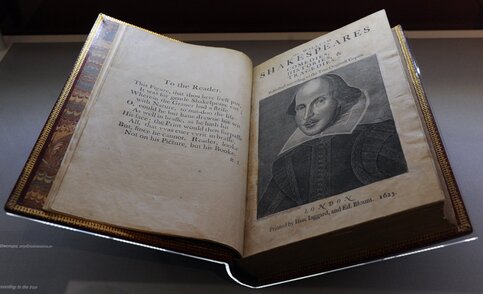 To the Reader.
This Figure, that thou here seest put,
It was for gentle Shakespeare cut;
Wherein the Graver had a strife
with Nature, to out-doo the life:
O, could he but have drawne his wit
As well in brasse, as he hath hit
His face; the Print would then surpasse
All, that was ever writ in brasse.
But, since he cannot, Reader, looke
Not on his Picture, but his Booke.
B. I.
SHAKESPEARES
COMEDIES,
HISTORIES, &
TRAGEDIES.
Published according to the True Originall Copies.
LONDON
Printed by Isaac Iaggard, and Ed. Blount. 1623.
according to the true